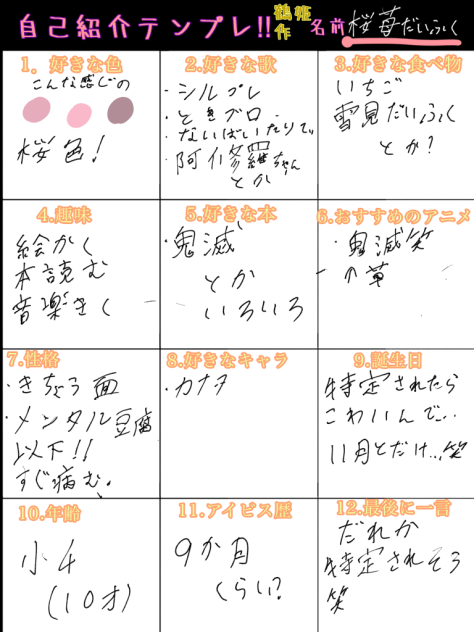 自己紹介テンプレ!! 鶴姫作 名前 桜苺だいふく
1. 好きな色
こんな感じの
桜色!
2.好きな歌
・シルブプレ
・ときブロ
・ないばいたりてぃ
・阿修羅ちゃん
とか
3.好きな食べ物
いちご
雪見だいふく
とか?
4.趣味
絵かく
本読む
音楽きく
5.好きな本
・鬼滅
とか
いろいろ
6.おすすめのアニメ
・鬼滅笑
↑草
7.性格
・きちょう面
・メンタル豆腐
以下!!
すぐ病む。
8.好きなキャラ
・カナヲ
9.誕生日
特定されたら
こわいんで...
11月とだけ...笑
10.年齢
小4
(10才)
11.アイビス歴
9か月
くらい?
12.最後に一言
だれか
特定されそう
笑